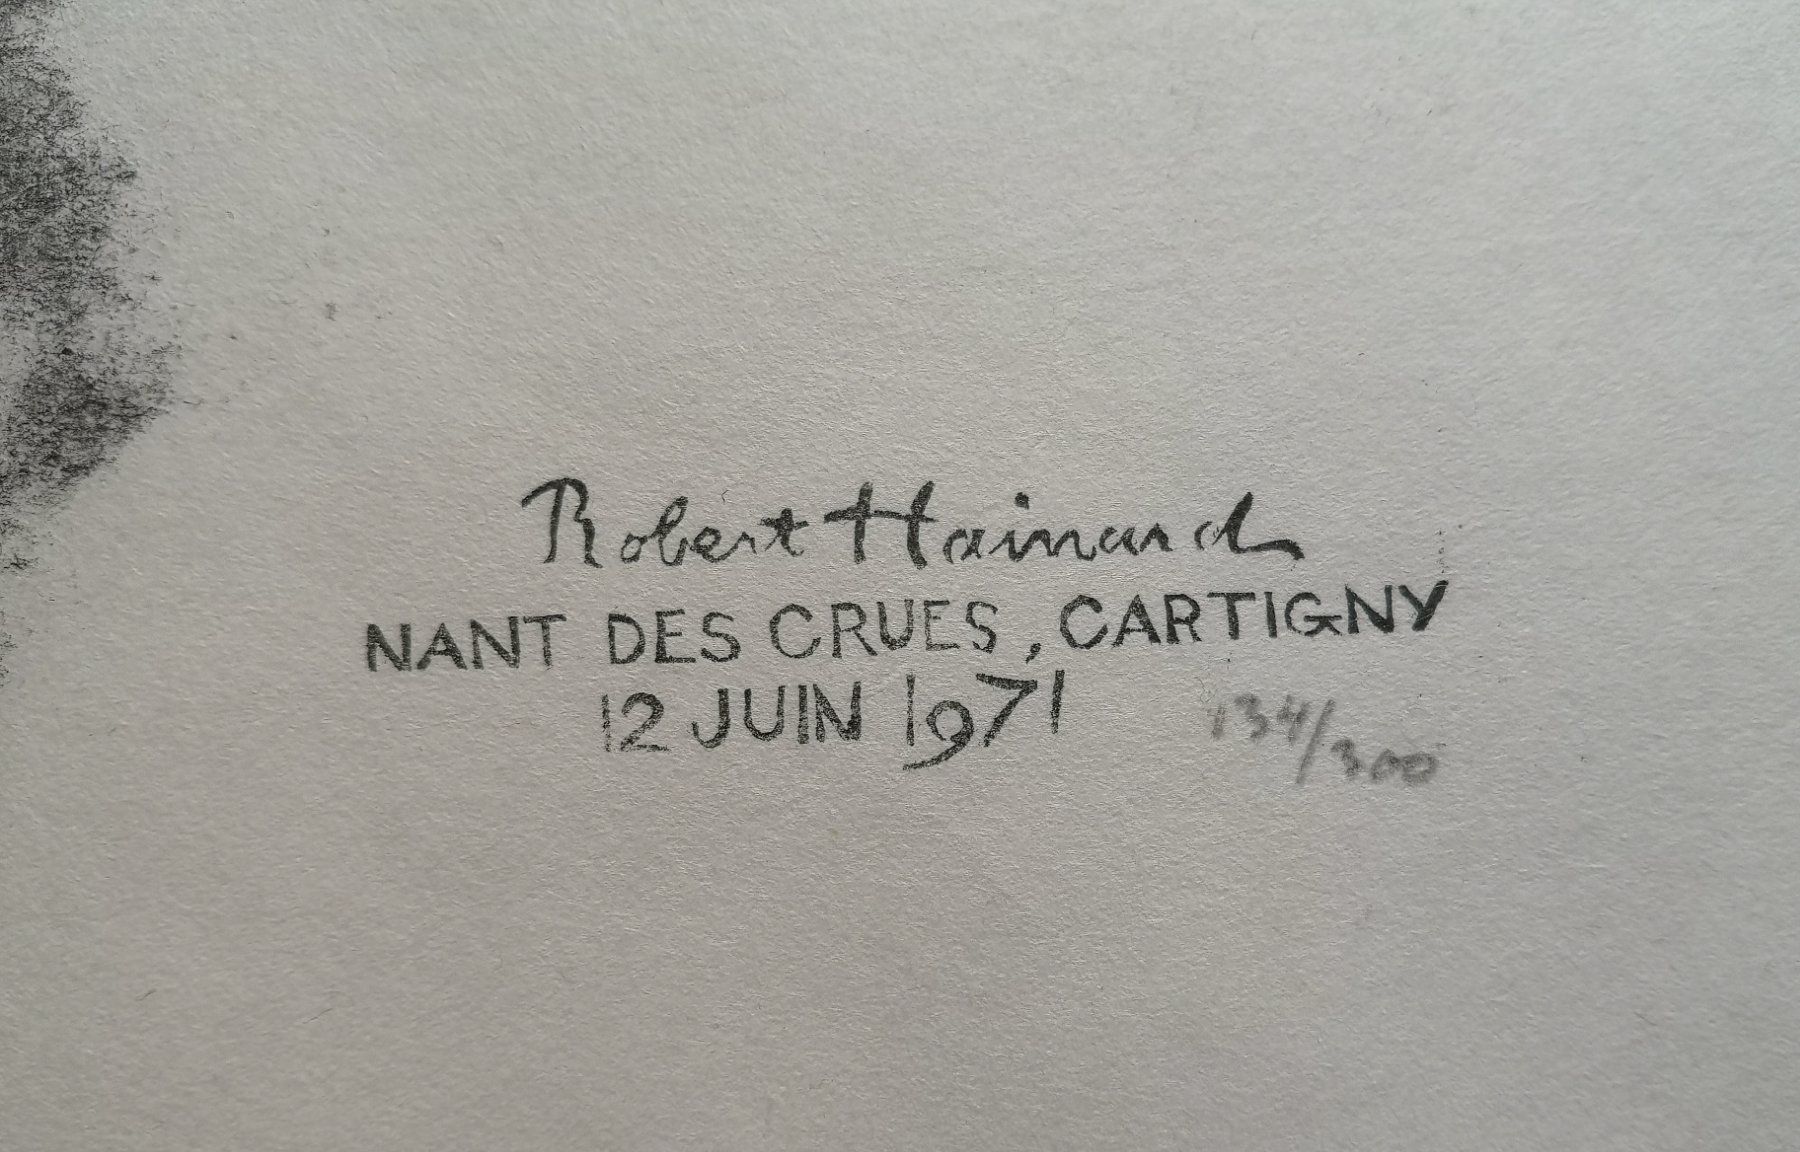 Robert Hainard
NANT DES CRUES, CARTIGNY
12 JUIN 1971
134/300